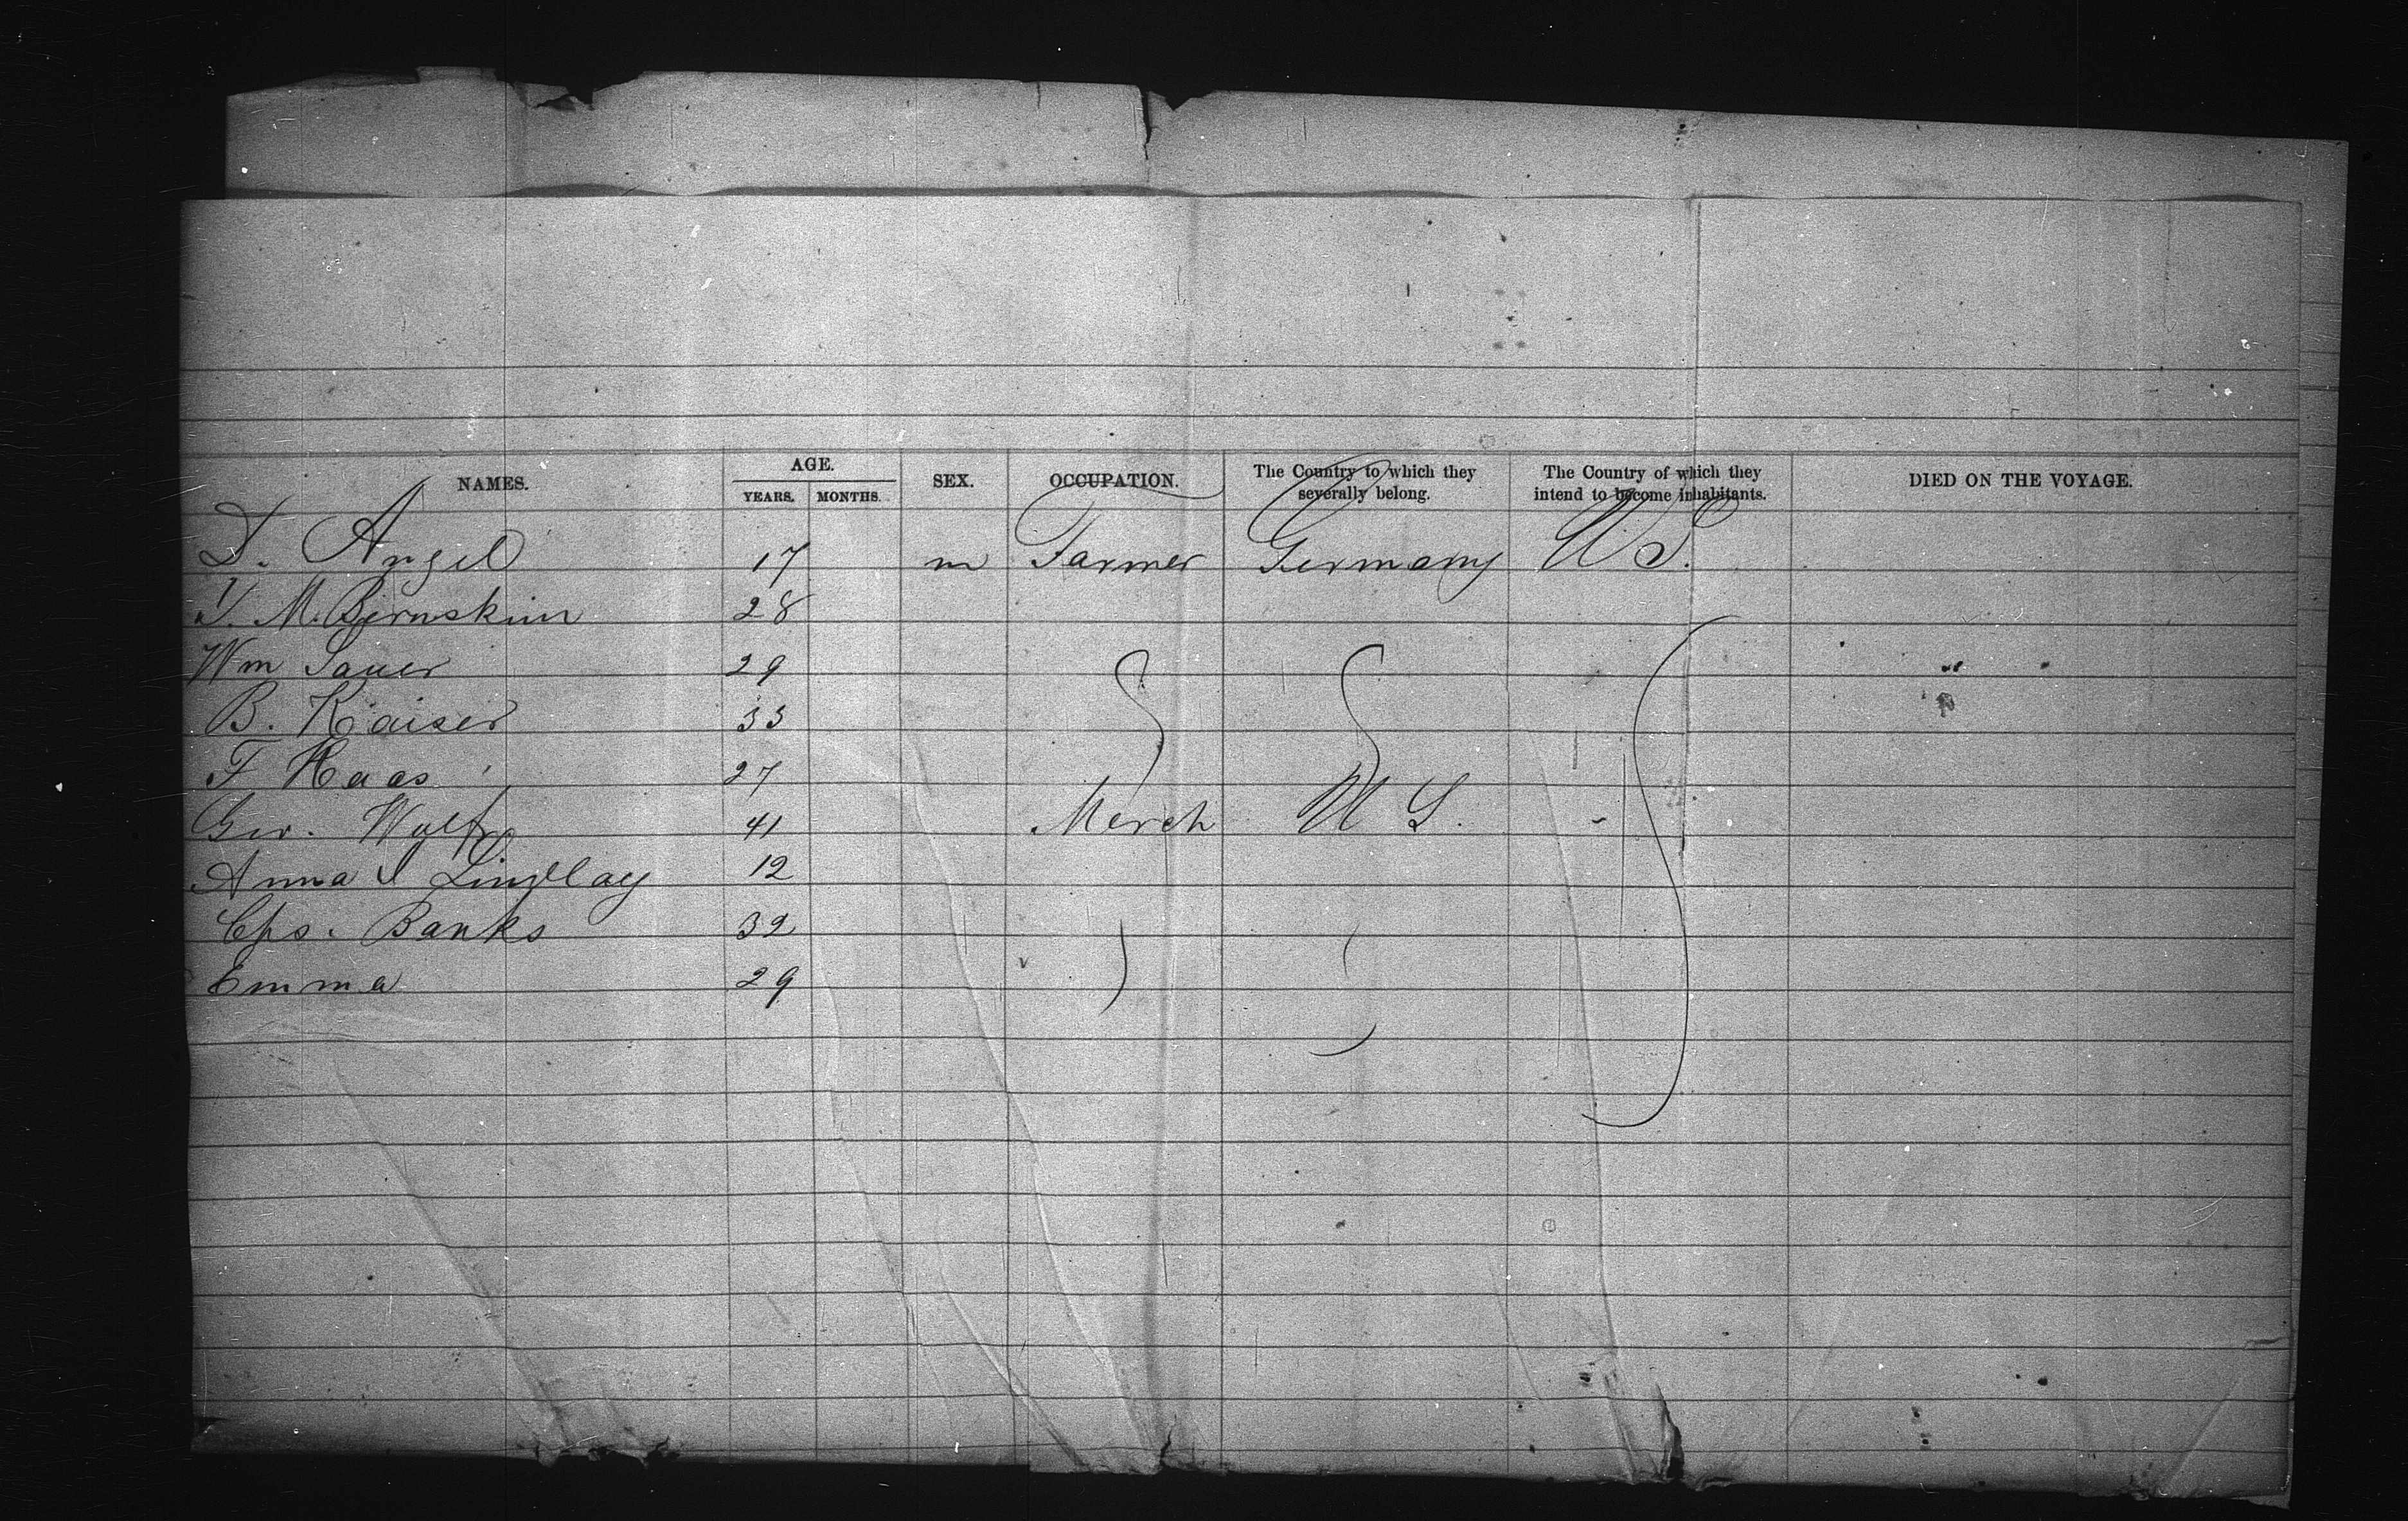 NAMES. AGE. YEARS. MONTHS. SEX. OCCUPATION. The Country to which they severally belong. The Country of which they intend to become inhabitants. DIED ON THE VOYAGE.
Angel 17 m Farmer Germany U S.
M. Bernskim 28
Wm Sauer 29
B. Kaiser 33
F Haas 27
Geo. Wolf 41 Merch U S.
Anna Lindlay 12
Chs. Banks 32
Emma 29